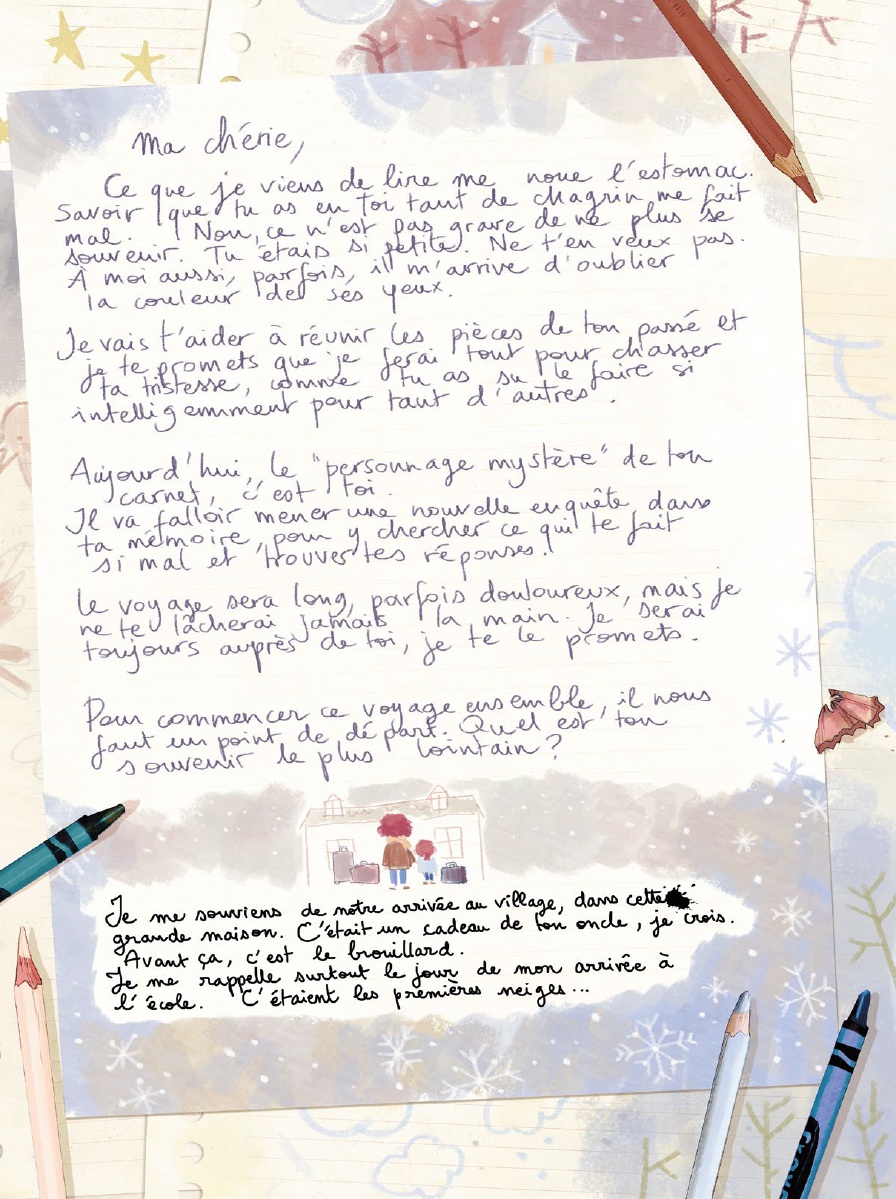 Ma chérie,
Ce que je viens de lire me noue l'estomac.
Savoir que tu as en toi tant de chagrin me fait
mal. Non, ce n'est pas grave de ne plus se
souvenir. Tu étais si petite. Ne t'en veux pas.
À moi aussi, parfois, il m'arrive d'oublier
la couleur de ses yeux.
Je vais t'aider à réunir les pièces de ton passé et
je te promets que je ferai tout pour chasser
ta tristesse, comme tu as su le faire si
intelligemment pour tant d'autres.
Aujourd'hui, le "personnage mystère" de ton
carnet, c'est toi.
Il va falloir mener une nouvelle enquête, dans
ta mémoire, pour y chercher ce qui te fait
si mal et trouver tes réponses.
Le voyage sera long, parfois douloureux, mais je
ne te lâcherai jamais la main. Je serai
toujours auprès de toi, je te le promets.
Pour commencer ce voyage ensemble, il nous
faut un point de départ. Quel est ton
souvenir le plus lointain ?
Je me souviens de notre arrivée au village, dans cette
grande maison. C'était un cadeau de ton oncle, je crois.
Avant ça, c'est le brouillard.
Je me rappelle surtout le jour de mon arrivée à
l'école. C'étaient les premières neiges...